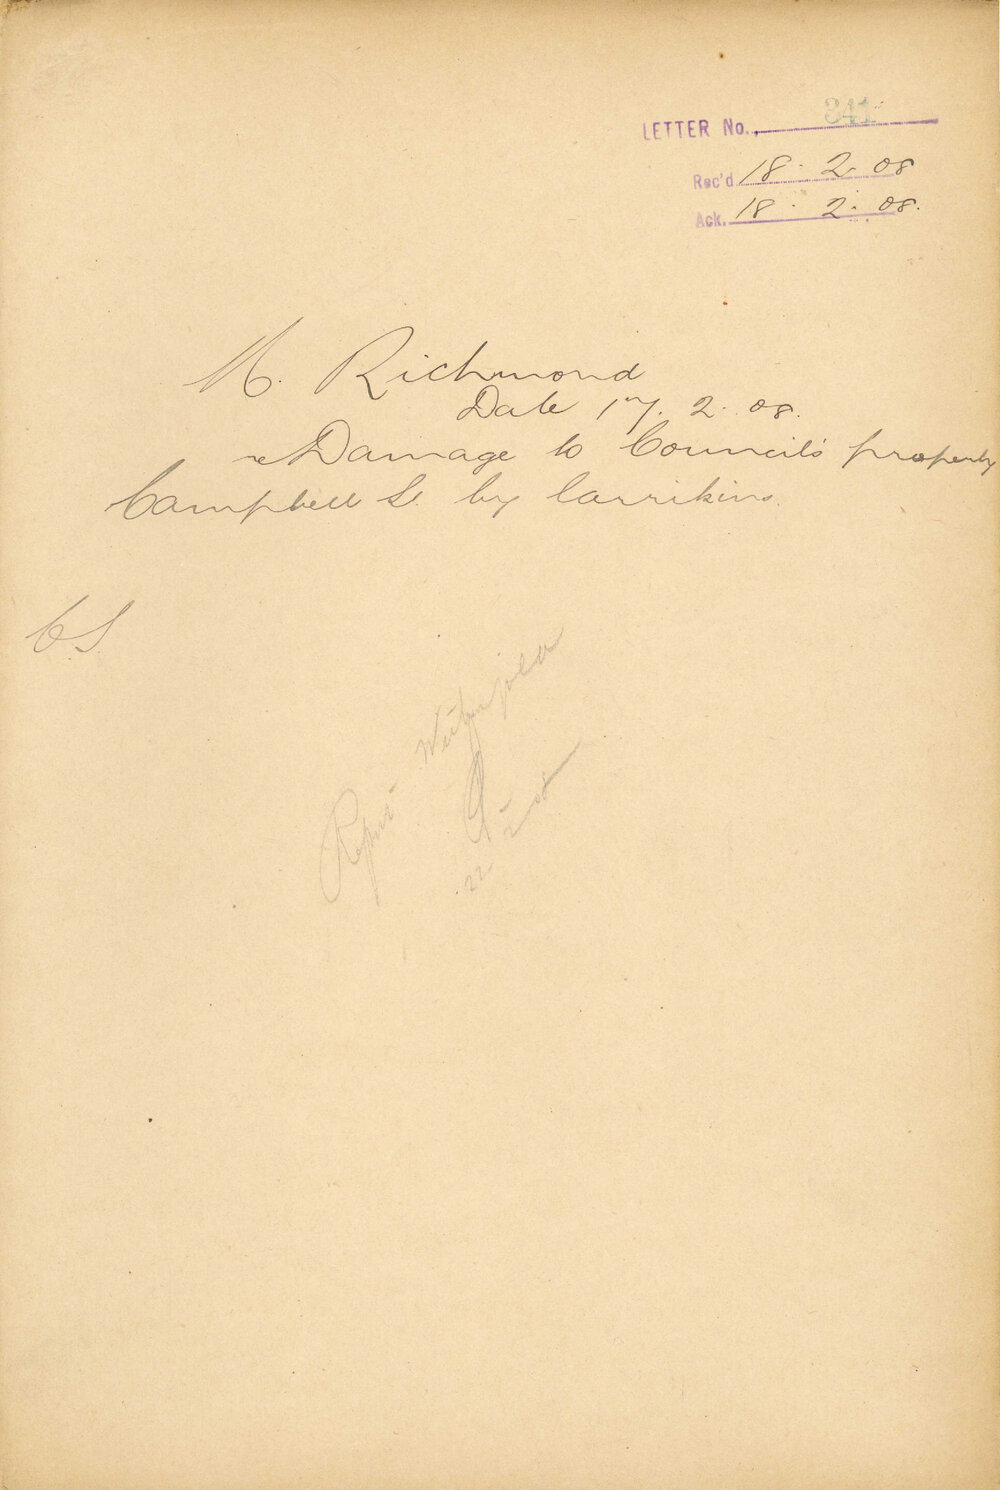 LETTER No. 341
Rec'd 18. 2. 08
Ack. 18. 2. 08.
M. Richmond
Date 17. 2. 08.
re Damage to Council's property
Campbell St. by larrikins.
CS
Report
22 2 08